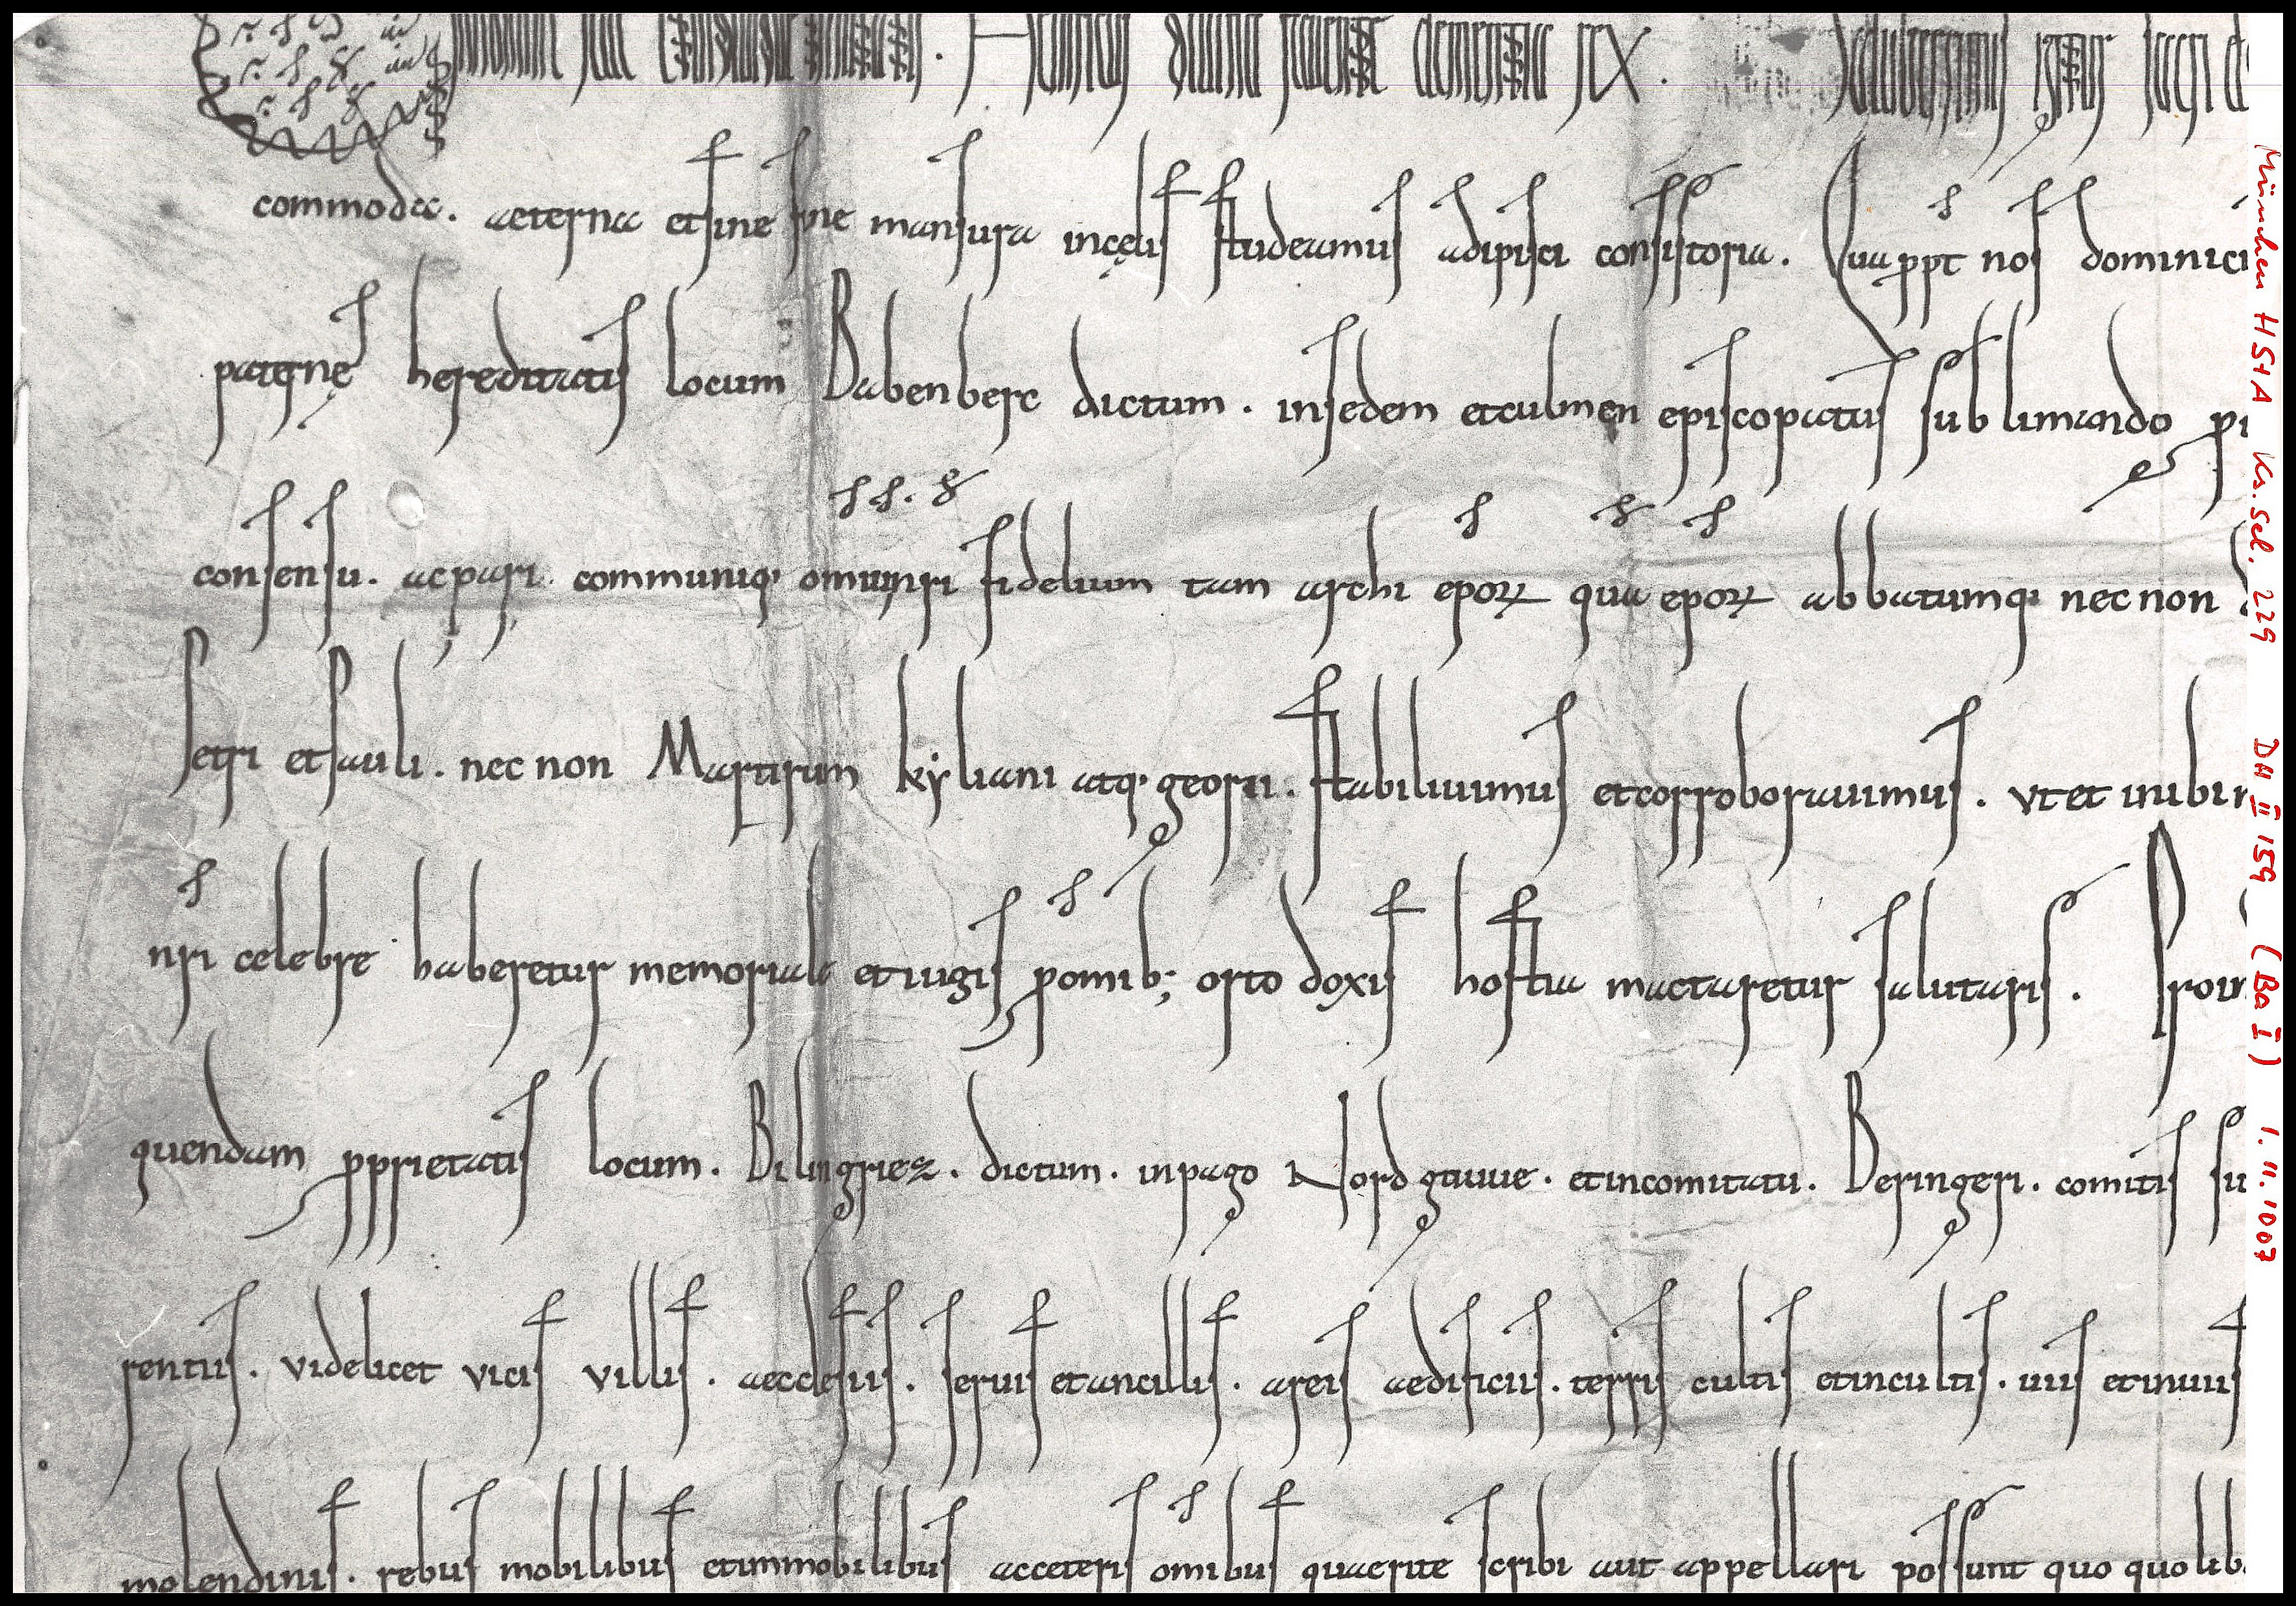 nomine sancte et individue trinitatis. Heinricus divina favente clementia rex. Saluberrimis igitur sacri
commoda. aeterna et sine fine mansura incęlis studeamus adipisci consistoria. Qua ppt nos dominici
paternę hereditatis locum Babenberc dictum. insedem et culmen episcopatus sublimando
consensu. ac pari. communiq; omium nri fidelium tam archi epoꝝ qua epoꝝ abbatumq; nec non
Petri et Pauli. nec non Martirum kyliani atq; georii. stabiliuimus et corroborauimus. vt et inibi
nri celebre haberetur memoriale et iugis p omib; orto doxis hostia mactaretur salutaris. Proin
quendam pprietatis locum. Bilingriez. dictum. in pago Nordgauue. et in comitatu. Beringeri. comitis
rentiis. videlicet vicis villis. aecclesiis. seruis et ancillis. areis aedificiis. terris cultis et incultis. uiis et inuiis
molendinis. rebus mobilibus et immobilibus ac ceteris omibus quae rite scribi aut appellari possunt quo quolib
München HStA Ks. Sel. 229 DH II 159 (Ba I) 1.11.1007